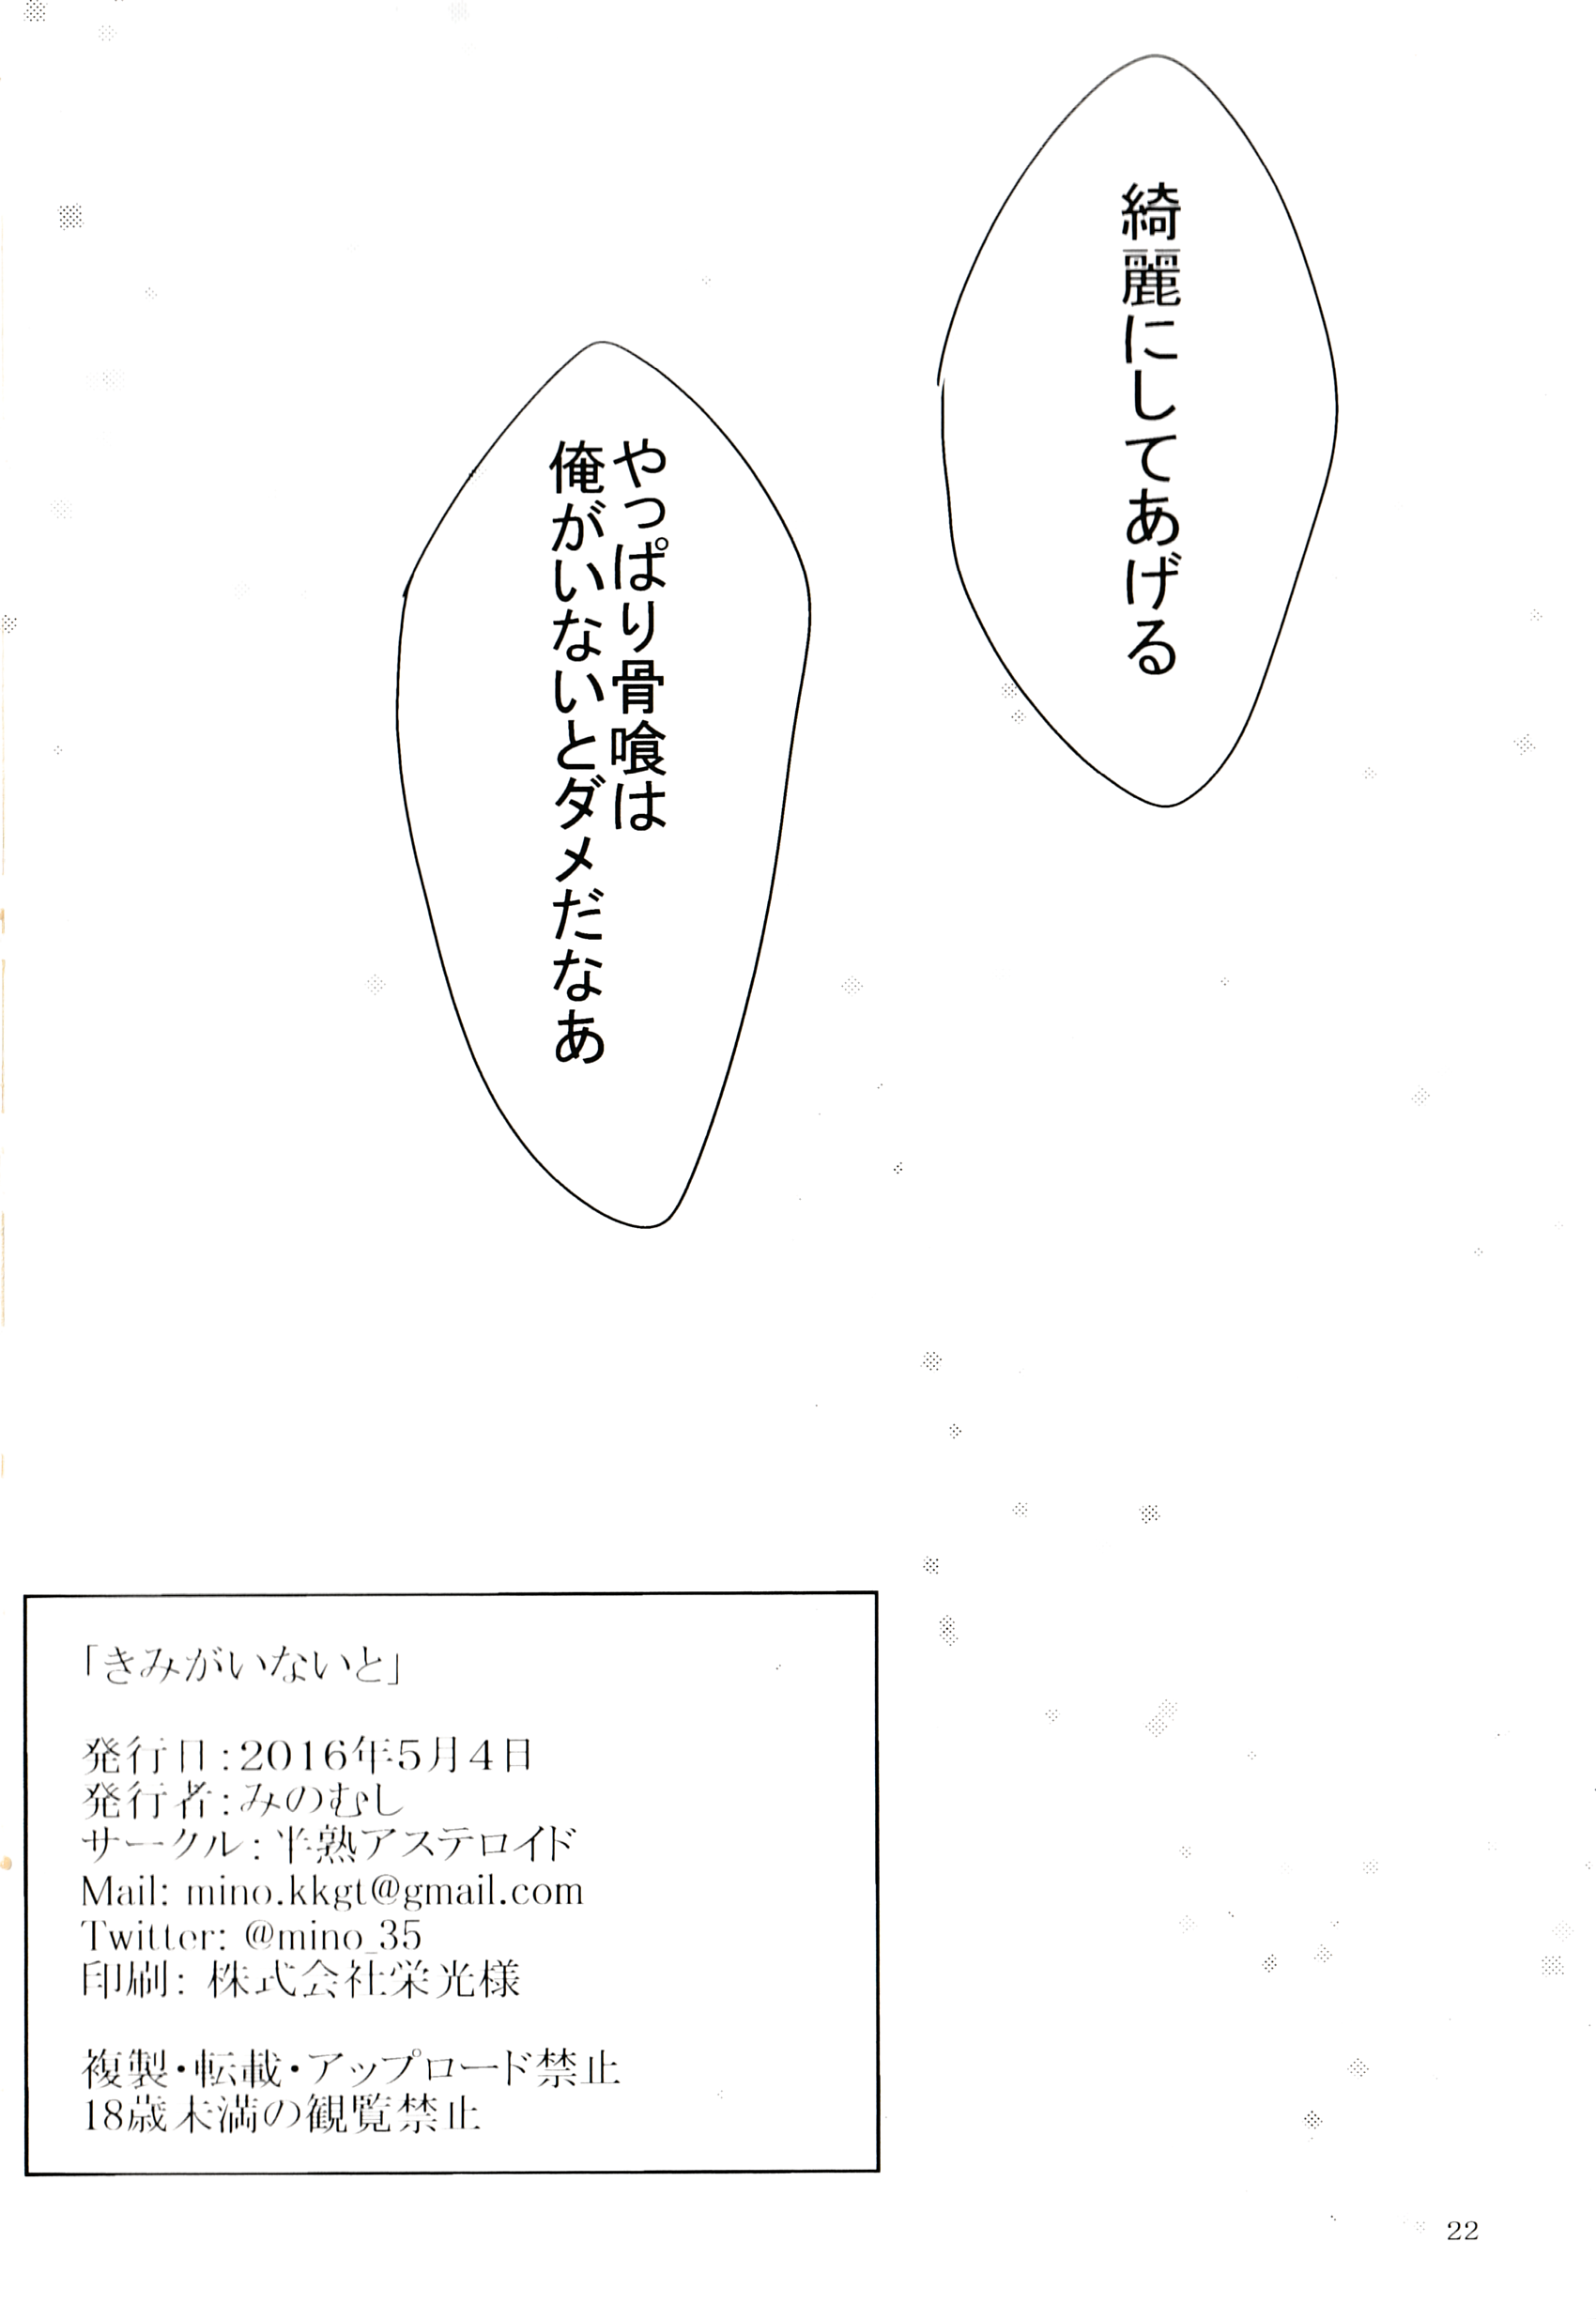 綺麗にしてあげる
やっぱり骨喰は
俺がいないとダメだなあ
「きみがいないと」
発行日:2016年5月4日
発行者:みのむし
サークル: 半熟アステロイド
Mail: mino.kkgt@gmail.com
Twitter: @mino_35
印刷: 株式会社栄光様
複製・転載・アップロード禁止
18歳未満の観覧禁止
22